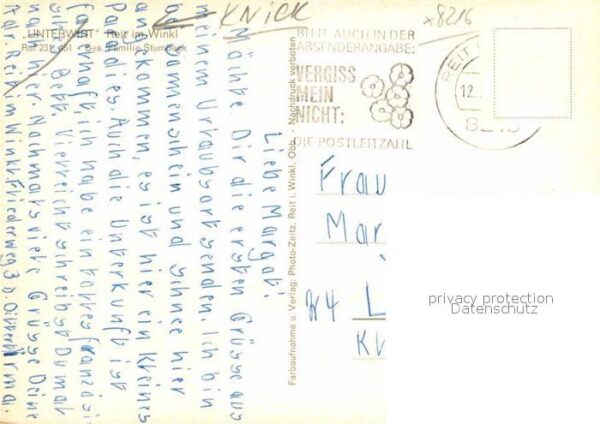 KNICK
x8216
"UNTERWIRT" Reit im Winkl
Ruf 231/451 Bes. Familie Stumbeck
BITTE AUCH IN DER
ABSENDERANGABE:
VERGISS
MEIN
NICHT:
DIE POSTLEITZAHL
REIT
12.
Farbaufnahme u. Verlag: Photo-Zeitz, Reit i. Winkl, Obb. - Nachdruck verboten
Liebe Margot!
Möchte Dir die ersten Grüsse aus
meinem Urlaubsort senden. Ich bin
bei Sonnenschein und Schnee hier
angekommen, es ist hier ein kleines
Paradies. Auch die Unterkunft ist
fabelhaft, ich habe ein tolles französi-
sches Bett. Vielleicht schreibst Du mal
nach hier. Nochmals viele Grüsse Deine
Irma.
Adr. Reit im Winkl. Fliederweg 3 b.
Frau
Mar
L
privacy protection
Datenschutz